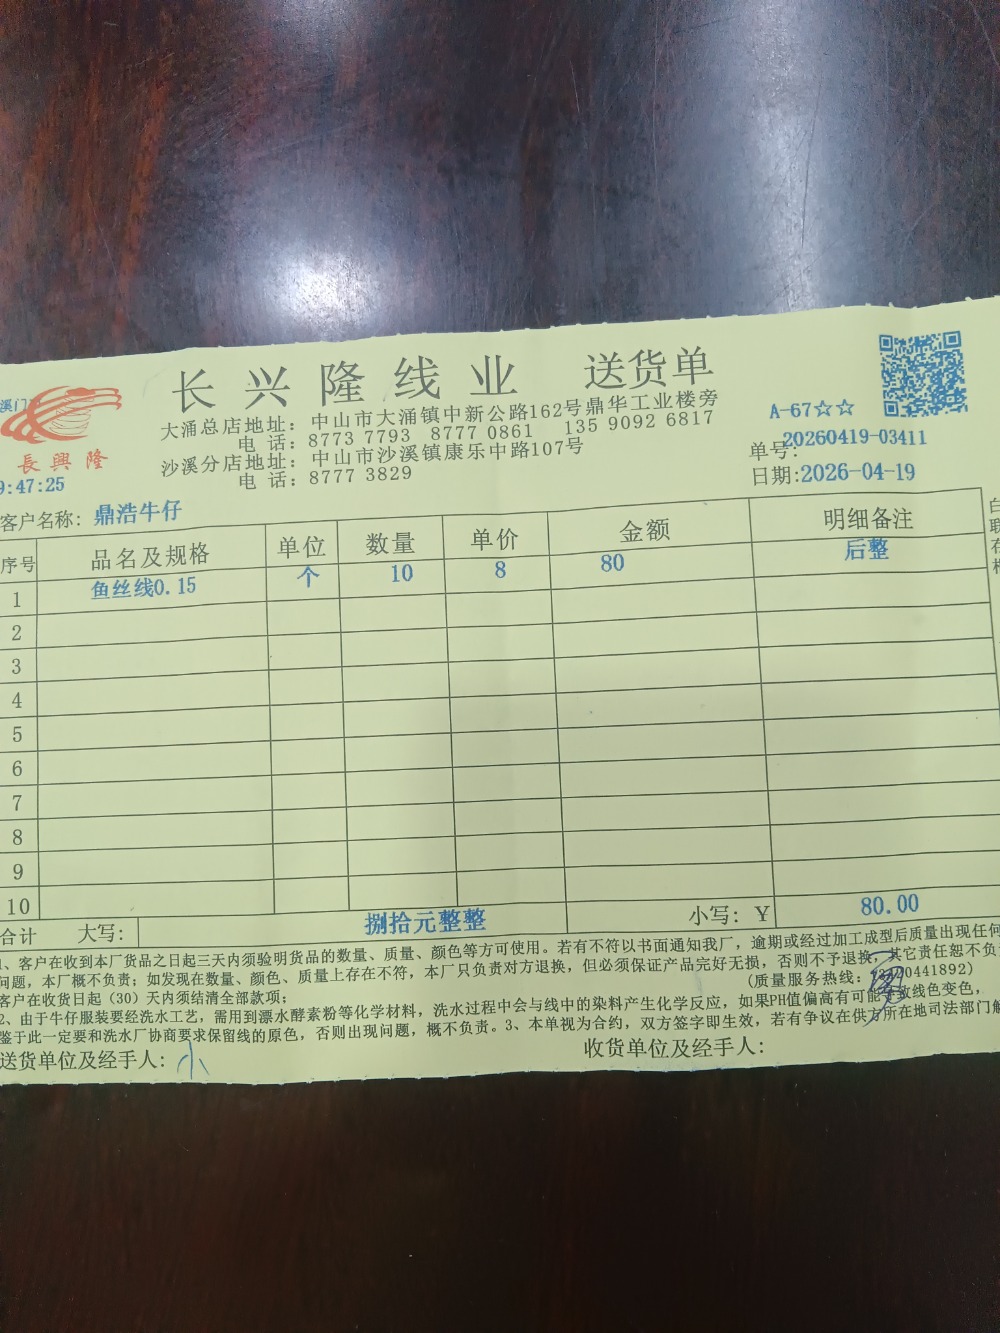 长兴隆线业 送货单
大涌总店地址：中山市大涌镇中新公路162号鼎华工业楼旁
电 话：8773 7793 8777 0861 135 9092 6817
沙溪分店地址：中山市沙溪镇康乐中路107号
电 话：8777 3829
長興隆
溪门
9:47:25
A-67☆☆
单号:20260419-03411
日期:2026-04-19
客户名称：鼎浩牛仔
序号 品名及规格 单位 数量 单价 金额 明细备注
1 鱼丝线0.15 个 10 8 80 后整
2
3
4
5
6
7
8
9
10
合计 大写： 捌拾元整整 小写：￥ 80.00
1、客户在收到本厂货品之日起三天内须验明货品的数量、质量、颜色等方可使用。若有不符以书面通知我厂，逾期或经过加工成型后质量出现任何
问题，本厂概不负责；如发现在数量、颜色、质量上存在不符，本厂只负责对方退换，但必须保证产品完好无损，否则不予退换，其它责任恕不负
客户在收货日起（30）天内须结清全部款项； (质量服务热线： 20441892)
2、由于牛仔服装要经洗水工艺，需用到漂水酵素粉等化学材料，洗水过程中会与线中的染料产生化学反应，如果PH值偏高有可能导致线色变色，
鉴于此一定要和洗水厂协商要求保留线的原色，否则出现问题，概不负责。3、本单视为合约，双方签字即生效，若有争议在供方所在地司法部门解
送货单位及经手人：小 收货单位及经手人：
白
联
存